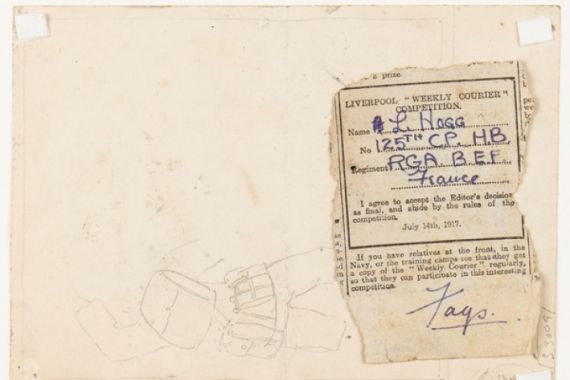 a prize.
LIVERPOOL "WEEKLY COURIER"
COMPETITION.
Name L. HOGG
No 125TH CP. H.B.
Regiment RGA B.E.F
France
I agree to accept the Editor's decision
as final, and abide by the rules of the
competition.
July 14th, 1917.
If you have relatives at the front, in the
Navy, or the training camps see that they get
a copy of the "Weekly Courier" regularly,
so that they can participate in this interesting
competition.
Fags.